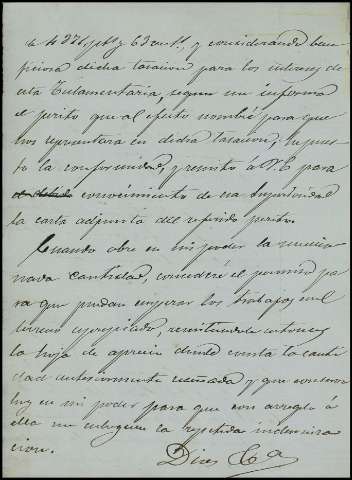 de 4.376, pts y 63 cents, y considerando bene
ficiosa dicha tasacion para los intereses de
esta Testamentaria, segun me informa
el perito que al efecto nombré para que
nos representara en dicha tasacion, he pues
to la conformidad, y remito á V.E. para
conocimiento de su Superioridad
la carta adjunta del referido perito.
Cuando obre en mi poder la mencio
nada cantidad, concederé el permiso pa
ra que puedan empezar los trabajos en el
terreno espropiado, remitiendole entonces
la hoja de aprecio donde consta la canti
dad anteriormente reseñada y que conservo
hoy en mi poder para que con arreglo á
ella me entreguen la repetida indemniza
cion.
Dios &a